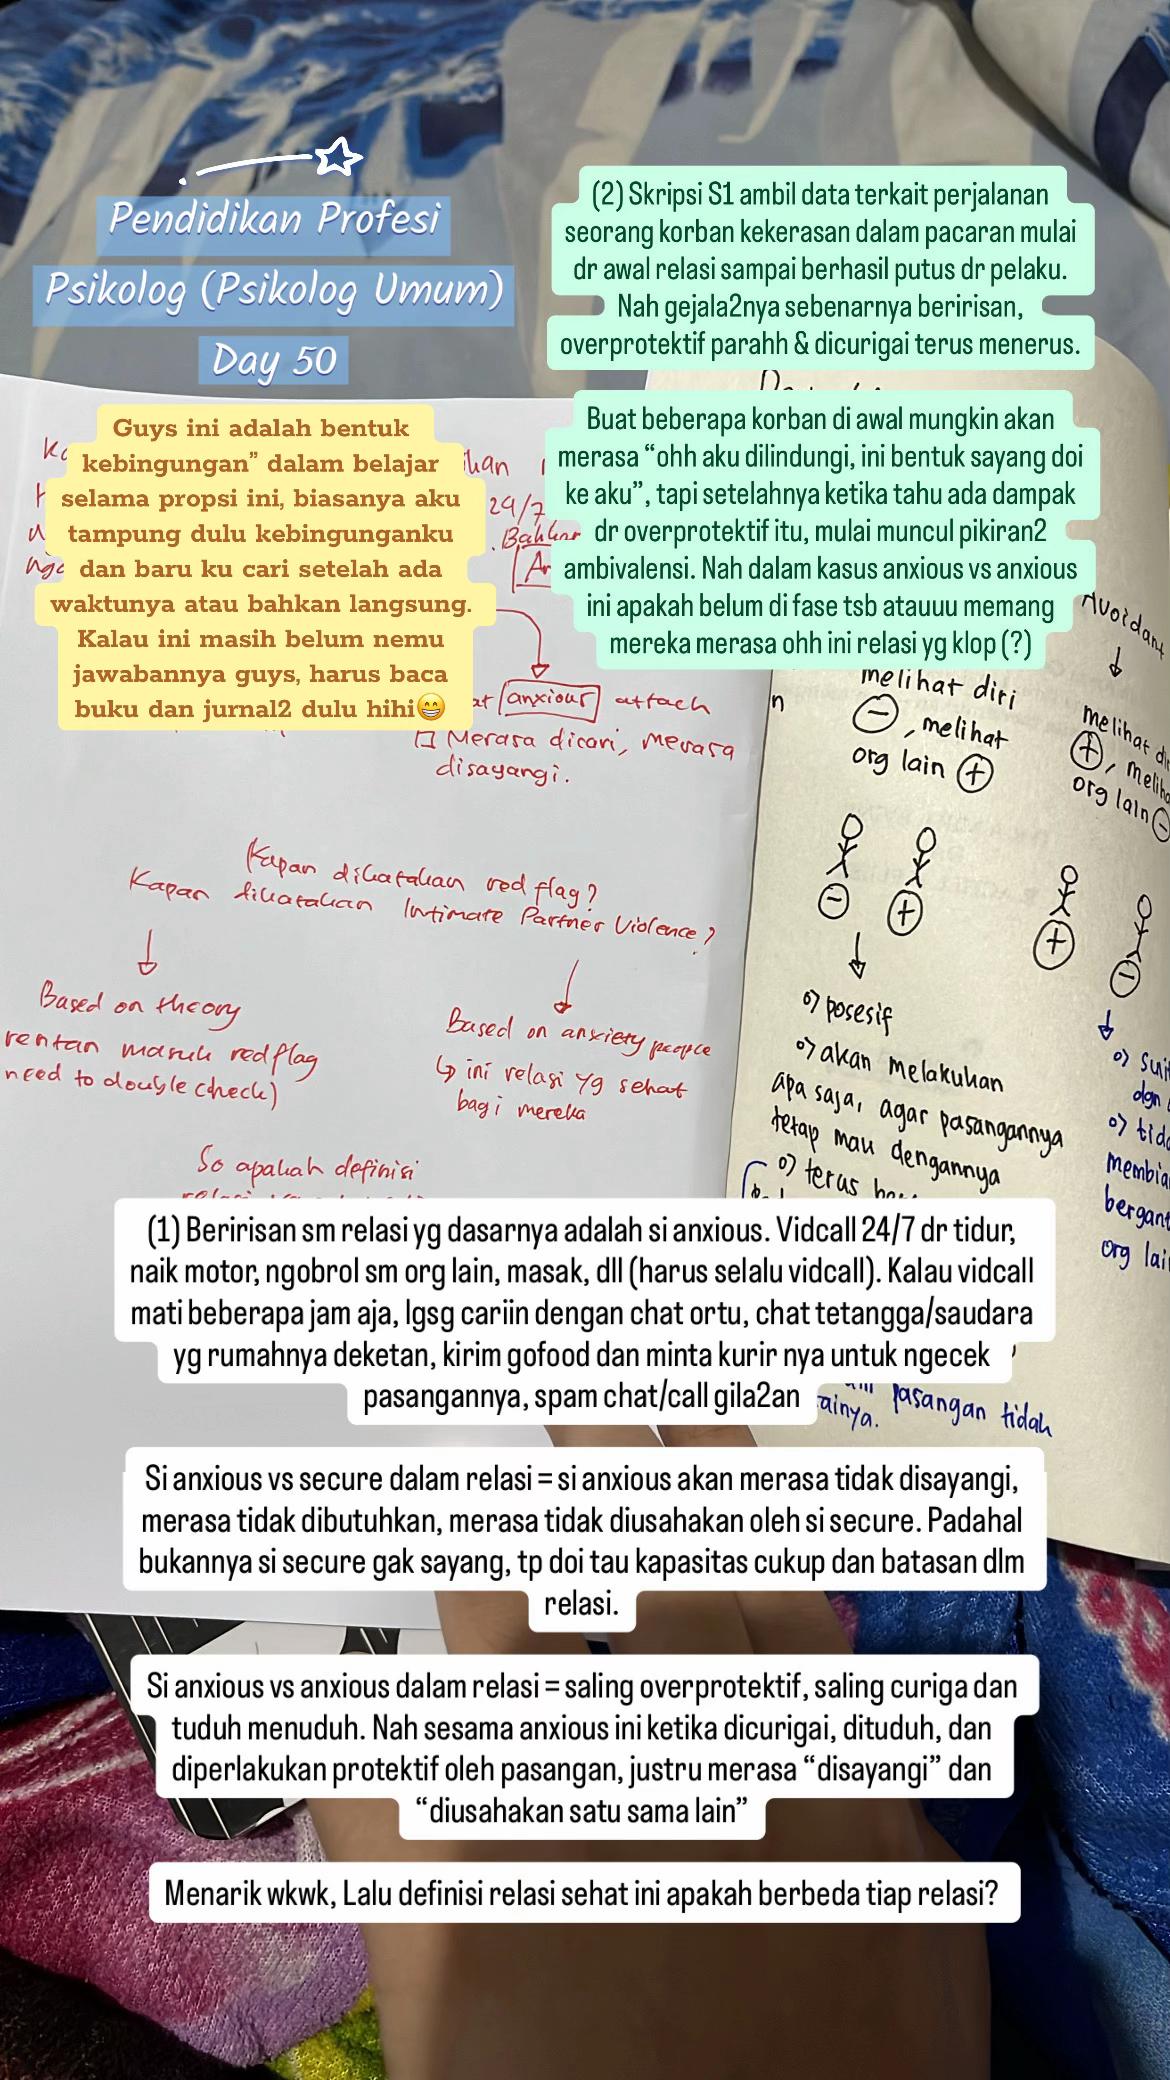 Pendidikan Profesi
Psikolog (Psikolog Umum)
Day 50
Guys ini adalah bentuk
kebingungan” dalam belajar
selama propsi ini, biasanya aku
tampung dulu kebingunganku
dan baru ku cari setelah ada
waktunya atau bahkan langsung.
Kalau ini masih belum nemu
jawabannya guys, harus baca
buku dan jurnal2 dulu hihi😁
(2) Skripsi S1 ambil data terkait perjalanan
seorang korban kekerasan dalam pacaran mulai
dr awal relasi sampai berhasil putus dr pelaku.
Nah gejala2nya sebenarnya beririsan,
overprotektif parahh & dicurigai terus menerus.
Buat beberapa korban di awal mungkin akan
merasa “ohh aku dilindungi, ini bentuk sayang doi
ke aku”, tapi setelahnya ketika tahu ada dampak
dr overprotektif itu, mulai muncul pikiran2
ambivalensi. Nah dalam kasus anxious vs anxious
ini apakah belum di fase tsb atauuu memang
mereka merasa ohh ini relasi yg klop (?)
24/7
Bahkan
anxious attach
Merasa dicari, merasa
disayangi.
Kapan dikatakan red flag?
Kapan dikatakan Intimate Partner Violence?
Based on theory
rentan masuk redflag
need to double check)
Based on anxiety people
↳ ini relasi yg sehat
bagi mereka
So apakah definisi
melihat diri
⊖, melihat
org lain ⊕
⊖ ⊕
o) posesif
o) akan melakukan
apa saja, agar pasangannya
tetap mau dengannya
o) terus
Avoidant
melihat
⊕,
org lain ⊖
⊕ ⊖
o)
dgn
o)
org
pasangan tidak
(1) Beririsan sm relasi yg dasarnya adalah si anxious. Vidcall 24/7 dr tidur,
naik motor, ngobrol sm org lain, masak, dll (harus selalu vidcall). Kalau vidcall
mati beberapa jam aja, lgsg cariin dengan chat ortu, chat tetangga/saudara
yg rumahnya deketan, kirim gofood dan minta kurir nya untuk ngecek
pasangannya, spam chat/call gila2an
Si anxious vs secure dalam relasi = si anxious akan merasa tidak disayangi,
merasa tidak dibutuhkan, merasa tidak diusahakan oleh si secure. Padahal
bukannya si secure gak sayang, tp doi tau kapasitas cukup dan batasan dlm
relasi.
Si anxious vs anxious dalam relasi = saling overprotektif, saling curiga dan
tuduh menuduh. Nah sesama anxious ini ketika dicurigai, dituduh, dan
diperlakukan protektif oleh pasangan, justru merasa “disayangi” dan
“diusahakan satu sama lain”
Menarik wkwk, Lalu definisi relasi sehat ini apakah berbeda tiap relasi?